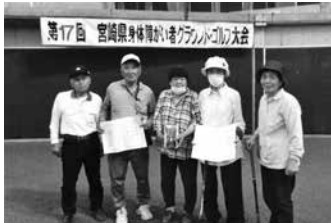 第17回 宮崎県身体障がい者グラウンド・ゴルフ大会